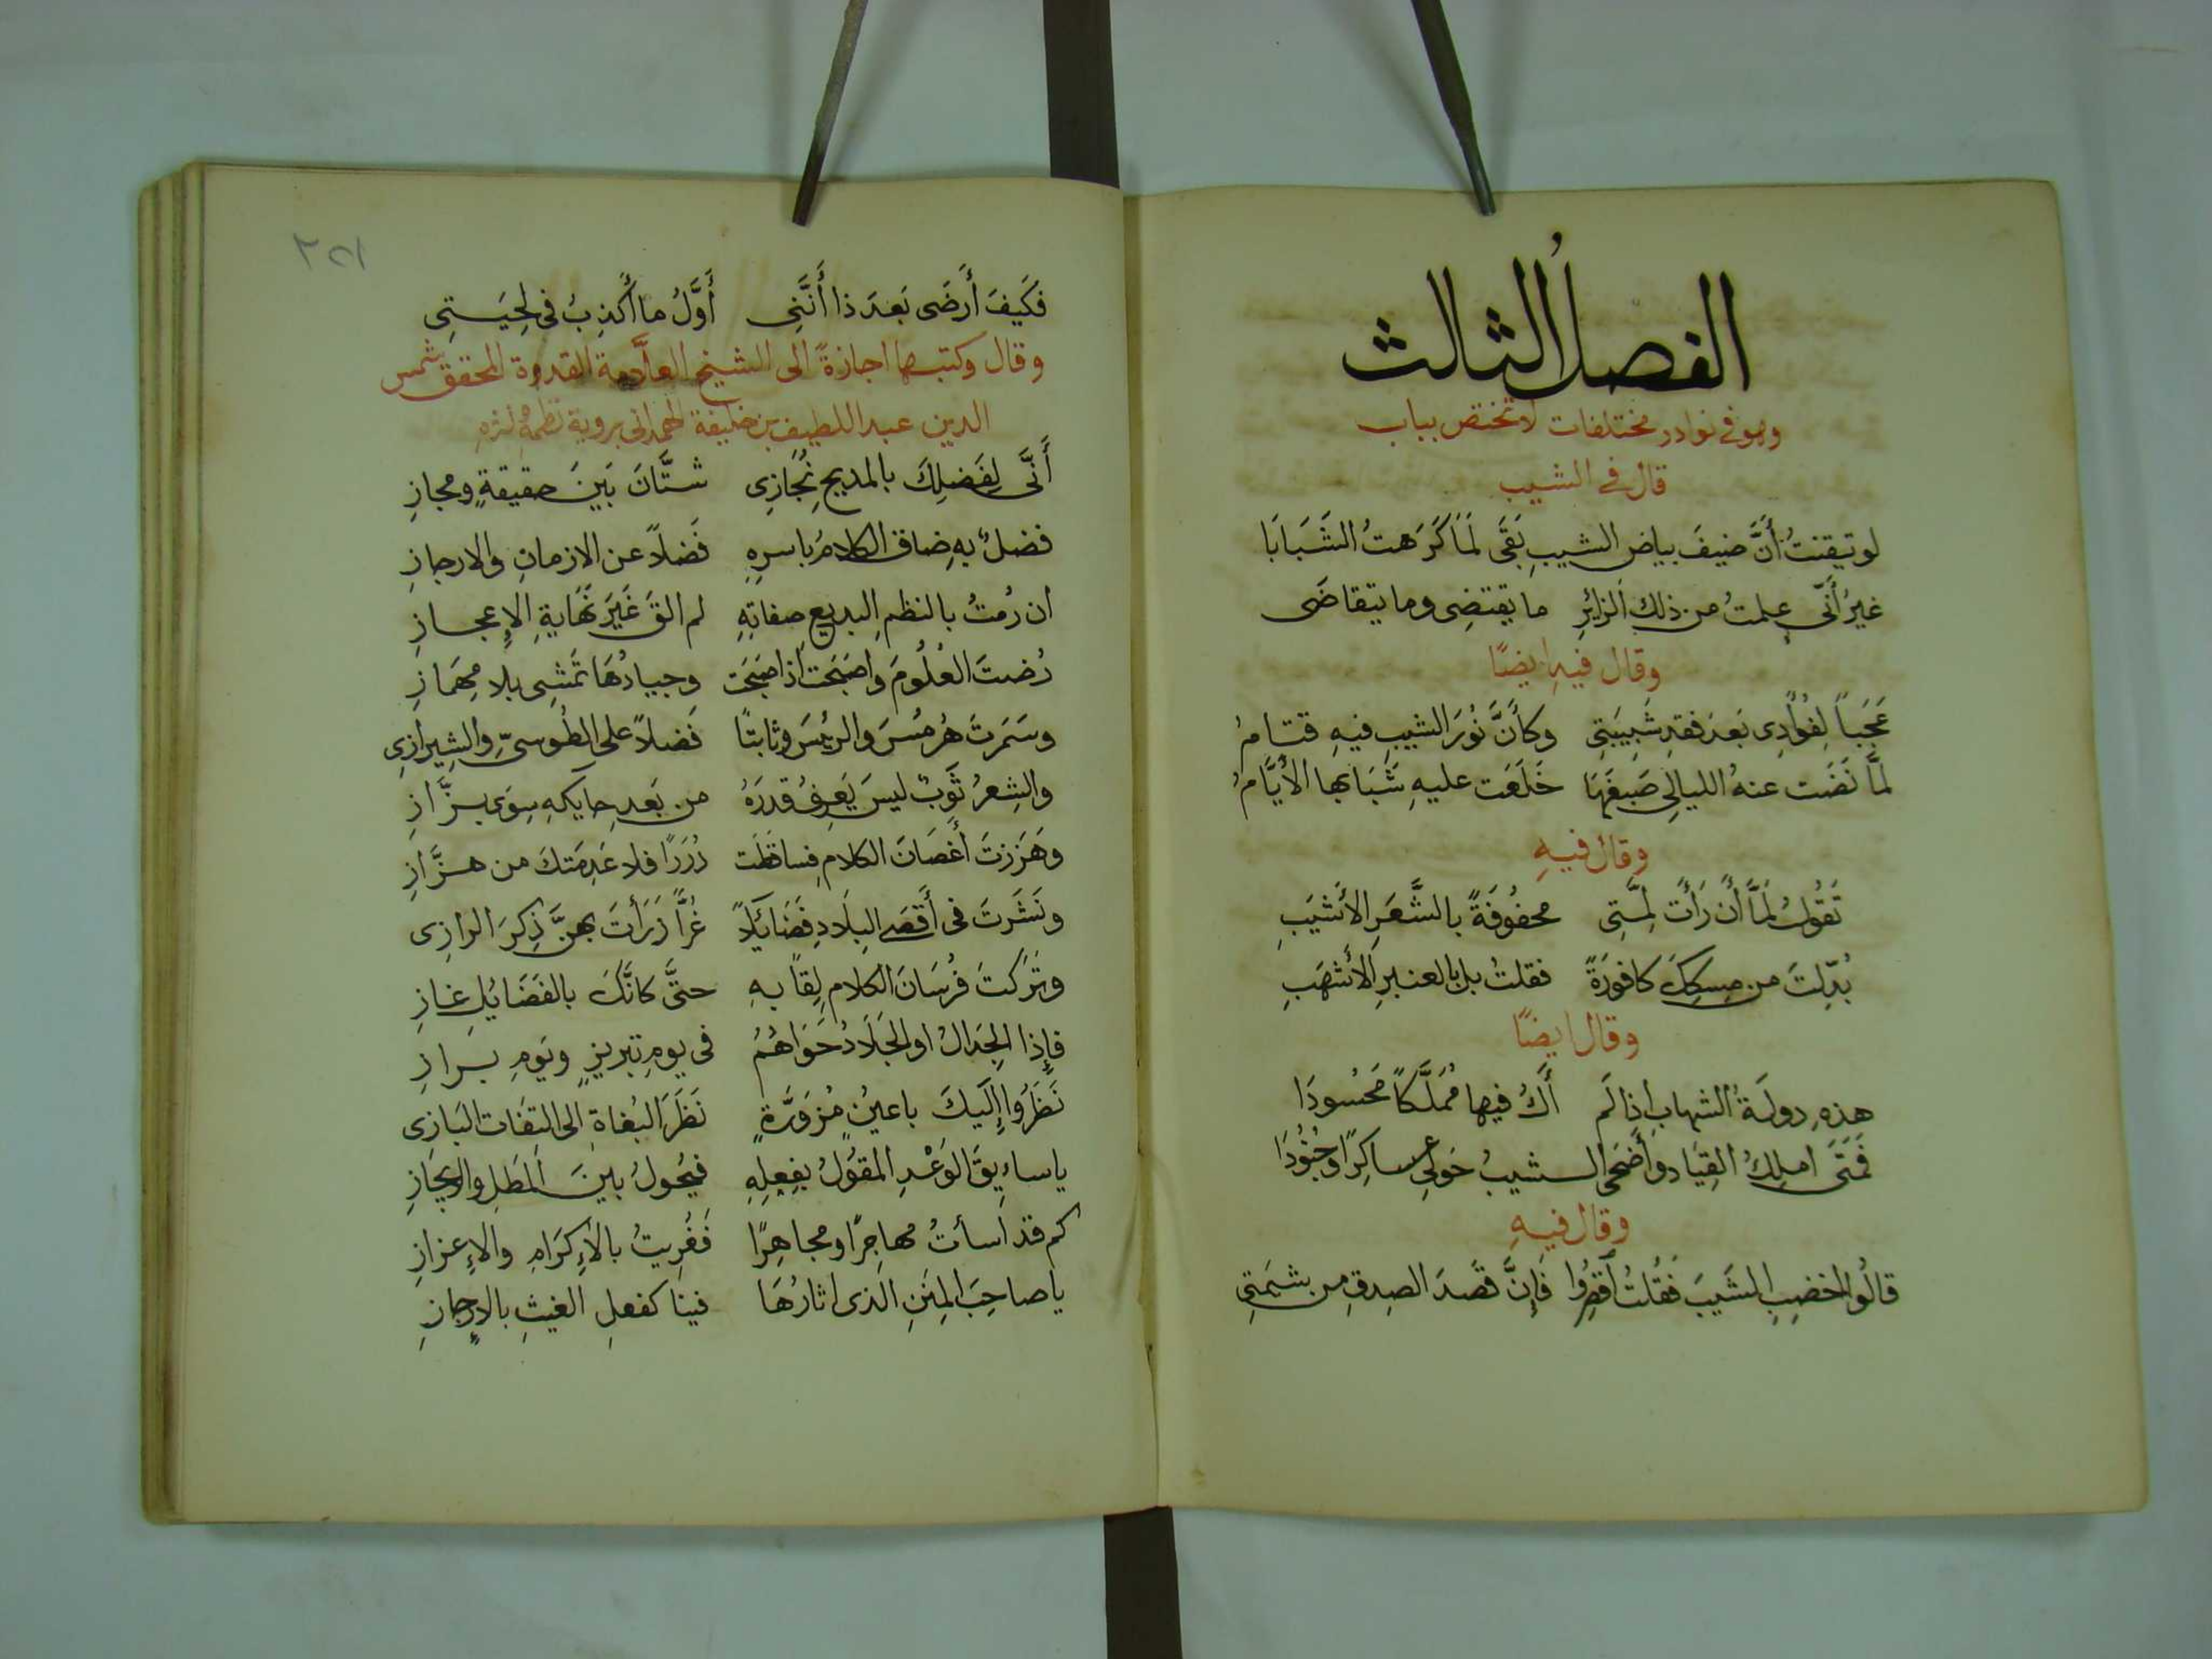 الفصلُ الثالث
وهو في نوادر مختلفات لا تختص بباب
قال في الشيب
لو تيقنتُ أَنَّ ضيفَ بياض الشيبِ يَبقَى لَمَا كَرَهتُ الشَبَابَا
غيرُ أَنّى علمتُ من ذلك الزائرِ ما يقتضِى وما يتقاضَى
وقال فيهِ ايضًا
عَجَباً لِفُؤادِى بَعدَ فقدِ شَبِيبَتِى وكأنَّ نُورَ الشيبِ فيهِ قتامُ
لمَّا نَضَت عنهُ الليالِى صَبغَهَا خَلَعَت عليهِ شَبَابها الأَيَّامُ
وقال فيهِ
تَقُولُ لَمَّا أَن رَأَت لِمَّتِى محفُوفَةً بالشَّعَرِ الأَشيَبِ
بُدِّلتَ من مِسكِكَ كافورَةً فقلتُ بل بالعنبرِ الأشهَبِ
وقال ايضًا
هذهِ دولَةُ الشهابِ اذا لَم أَكُ فيها مُمَلَّكاً مَحسُودَا
فَمَتَى املِكُ القِيَادَ وأَضحَى الشيبُ حَولِى عساكِرًا وجُنُودَا
وقال فيهِ
قالُوا اخضِبِ الشَيبَ فَقُلتُ اقصِرُوا فَإِنَّ قَصدَ الصِدقِ من شيمَتِى
٢٥١
فكَيفَ أَرضَى بَعدَ ذا أَنَّنِى أَوَّلُ ما أَكذِبُ فى لِحيَتِى
وقال وكتب بها اجازةً الى الشيخ العلَّامة القدوة المحقق شمس
الدين عبد اللطيف بن خليفة الهمدانى بروية نظمهِ ونثرهِ
أَنَّى لِفَضلِكَ بالمديحِ نُجَازِى شتَّانَ بَينَ حقيقةٍ ومجازِ
فضلٌ بهِ ضاق الكلامُ باسرِهِ فَضلاً عن الازمانِ والارجازِ
ان رُمتُ بالنظمِ البديعِ صفاتِهِ لم القَ غَيرَ نَهَايةِ الإِعجازِ
رُضتَ العُلُومَ واصبَحَت اذ اصبَحَت وجيادُهَا تَمشِى بلا مِهمَازِ
وسَمَرتَ هُرمُسَ والرئيسَ وثابتًا فَضلاً على الطُوسىِّ والشِيرازِى
والشِعرُ ثَوبٌ ليسَ يَعرِفُ قدرَهُ من بَعدِ حايكهِ سِوَى بزَّازِ
وهَزَزتَ أَغصَانَ الكلامِ فساقَطَت دُرَرًا فلا عَدِمتكَ من هزَّازِ
ونَشَرتَ فى أَقصَى البِلَادِ فَضَايِلًا غُرًّا زَرَأتَ بهنَّ ذِكرَ الرازِى
وتَرَكتَ فُرسَانَ الكلامِ لِقاً بهِ حتَّى كانَّكَ بالفَضَايِلِ غازِ
فإِذا الجِدَالُ او الجَلَادُ حَوَاهُمُ فى يومِ تبريزٍ ويَومِ برازِ
نَظَرُوا إِلَيكَ باعينٍ مُزوَرَّةٍ نَظَرَ البُغاةِ الى التِفَات البَازِى
يا سابِقَ الوَعْدِ المقُولُ بفِعلِهِ فيحُولُ بينَ المَطلِ والإيجازِ
كم قد اسأتُ مهاجِرًا ومجاهِرًا فَقُرِيتُ بالإِكرَامِ والإِعزازِ
يا صاحِبَ المِنَنِ الذى اثارُهَا فينا كفعلِ الغيثِ بالارجازِ